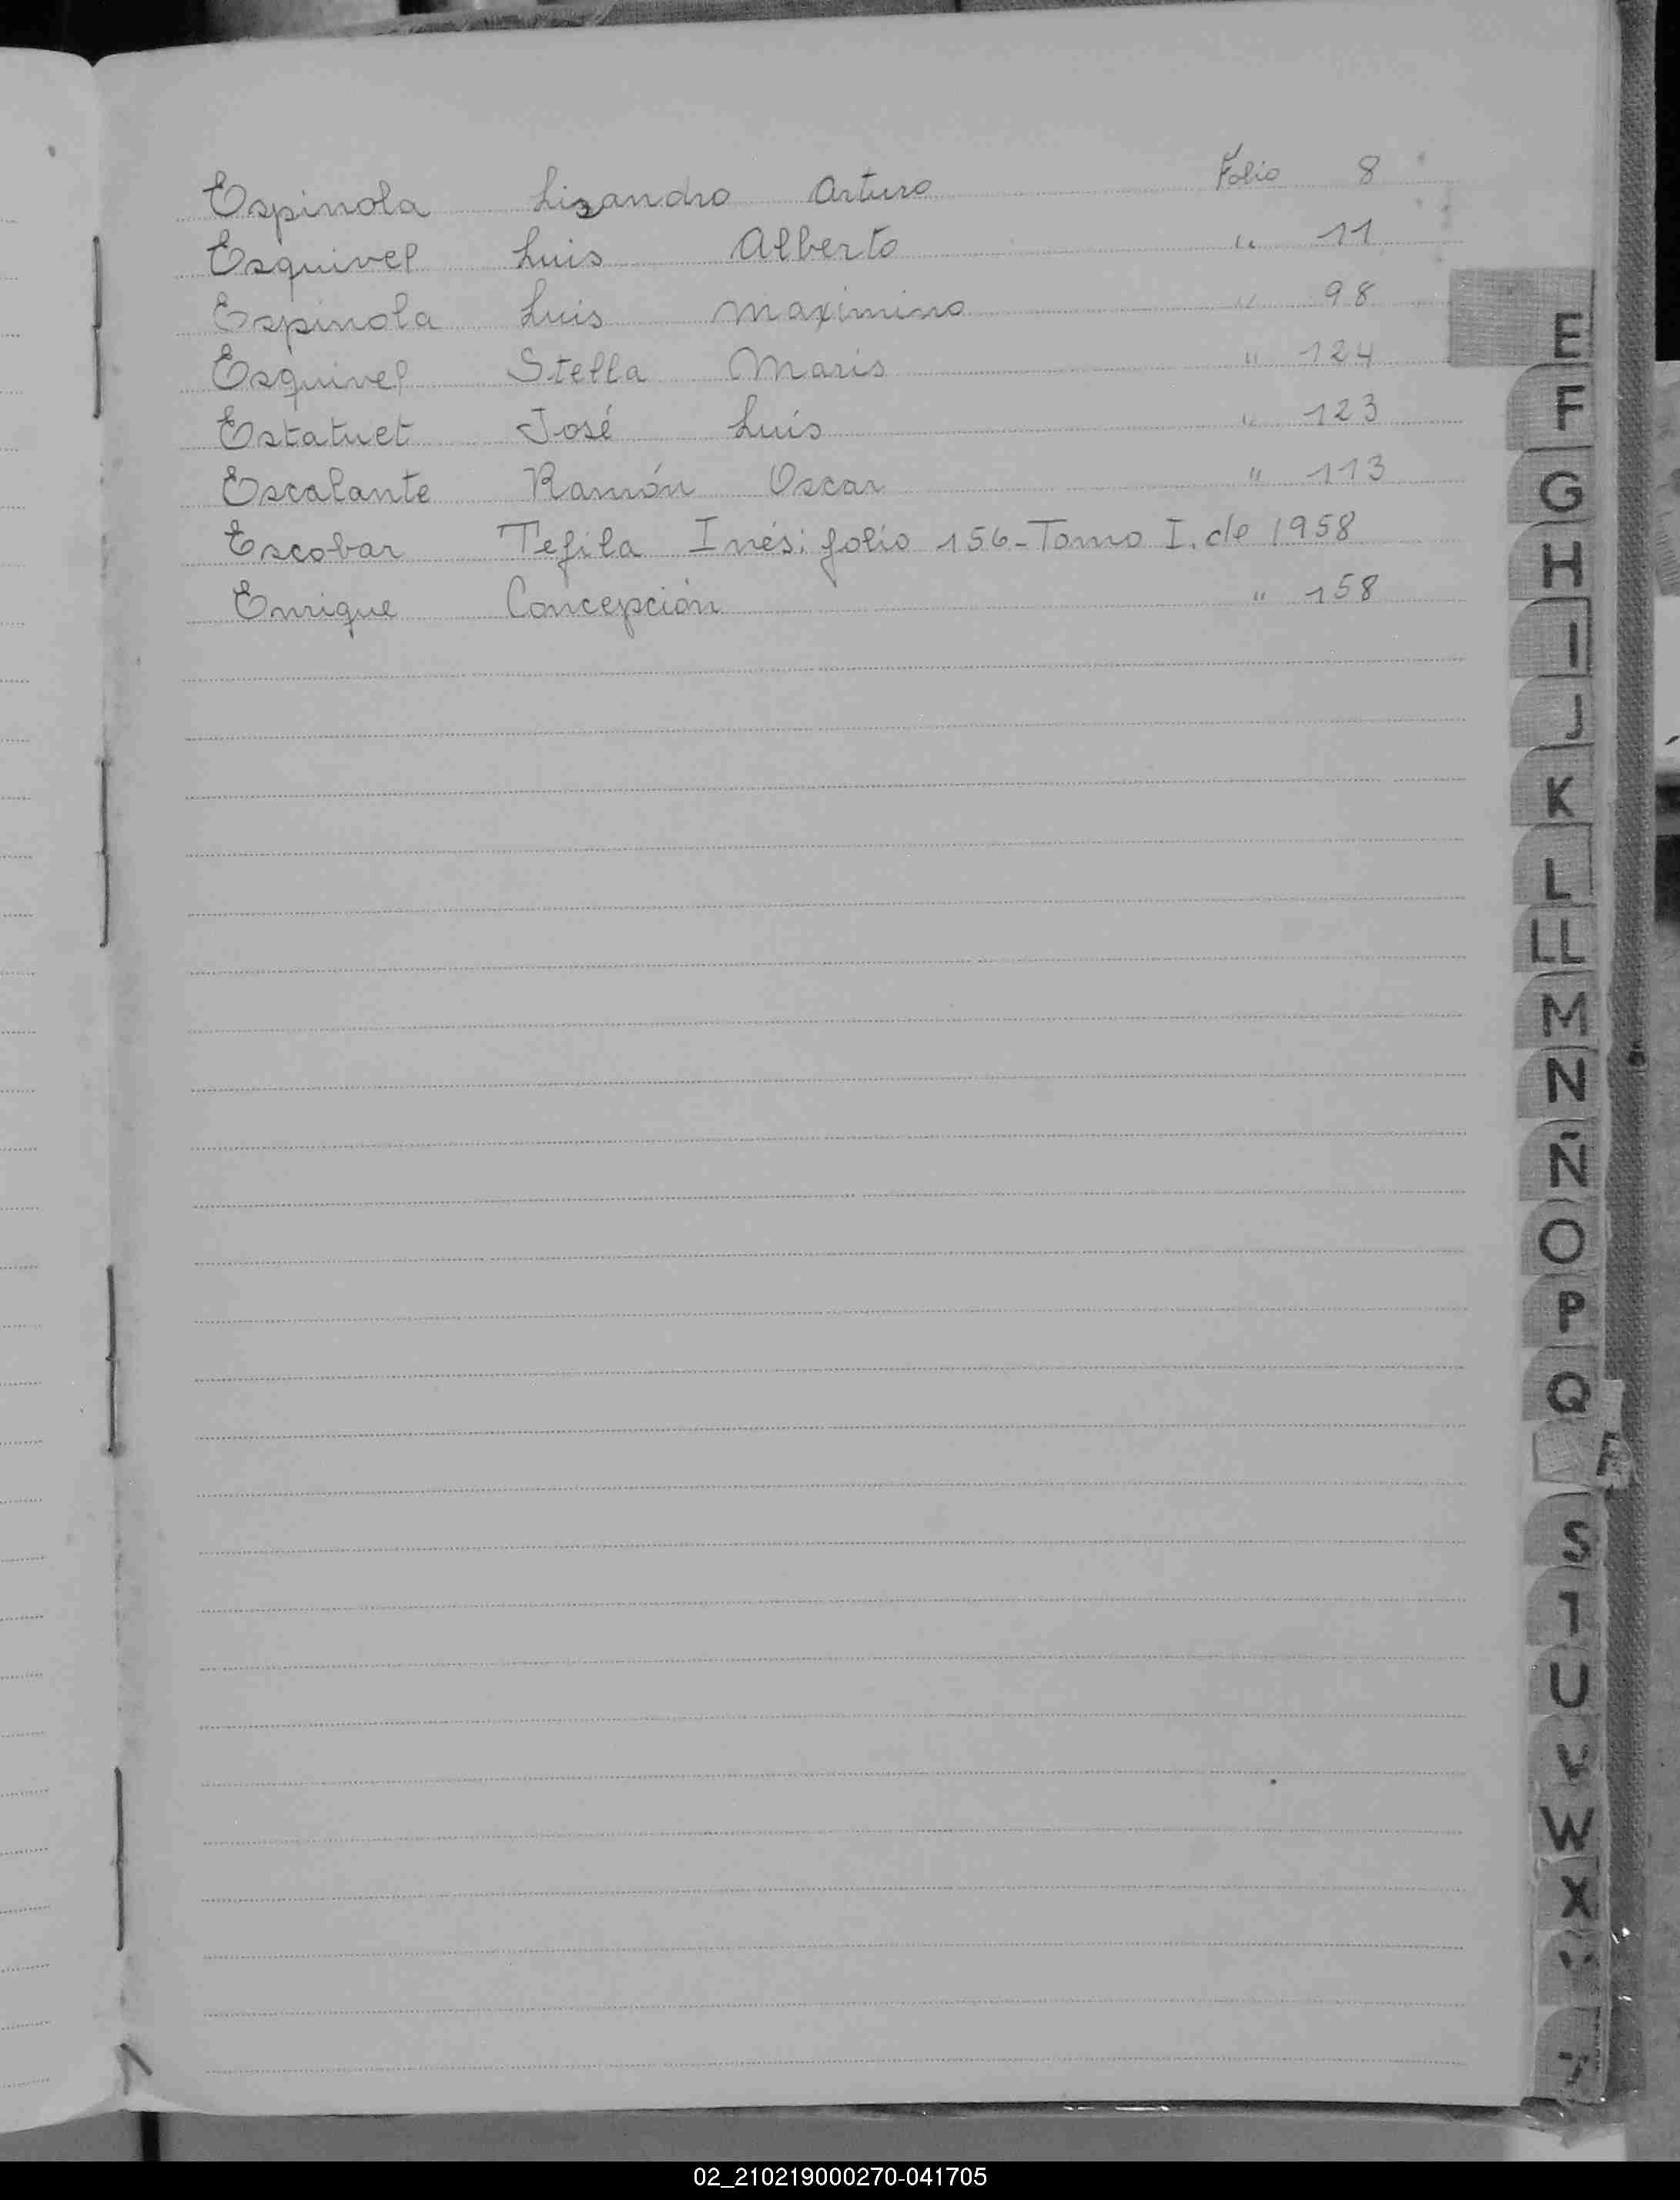 Espinola Lisandro Arturo Folio 8
Esquivel Luis Alberto " 11
Espinola Luis Maximino " 98
Esquivel Stella Maris " 124
Estatuet José Luis " 123
Escalante Ramón Oscar " 113
Escobar Tefila Inés: folio 156-Tomo I. de 1958
Enrique Concepción " 158
E
F
G
H
I
J
K
L
LL
M
N
Ñ
O
P
Q
S
T
U
V
W
X
02_210219000270-041705